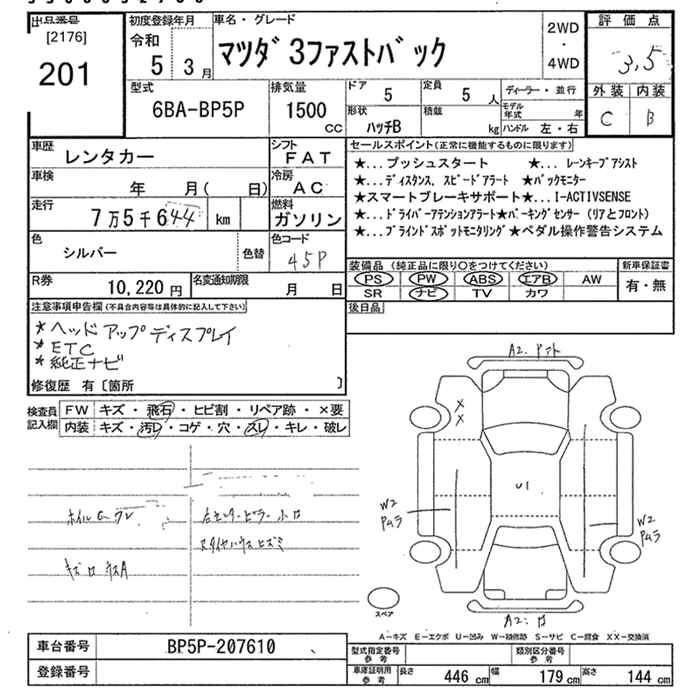 出品番号
[2176]
201
初度登録年月
令和
5 3月
車名・グレード
マツダ3ファストバック
2WD
・
4WD
評価点
3,5
外装 内装
C B
型式
6BA-BP5P
排気量
1500
CC
ドア
5
定員
5 人
形状
ハッチB
積載
kg
ディーラー・並行
モデル年式 年
ハンドル 左・右
車歴
レンタカー
シフト
FAT
車検
年 月( 日)
冷房
AC
走行
7万5千644 km
燃料
ガソリン
色
シルバー
色替
色コード
45P
R券
10,220円
名変通知期限
月 日
セールスポイント(正常に機能するものに限ります)
★...プッシュスタート ★... レーンキープアシスト
★...ディスタンス, スピードアラート ★バックモニター
★スマートブレーキサポート★...I-ACTIVSENSE
★...ドライバーアテンションアラート★パーキングセンサー (リアとフロント)
★...ブラインドスポットモニタリング★ペダル操作警告システム
装備品 (純正品に限り○をつけてください)
PS PW ABS エアB AW
SR ナビ TV カワ
新車保証書
有・無
後日品
注意事項申告欄(不具合内容等は具体的に記入して下さい)
*ヘッドアップディスプレイ
*ETC
*純正ナビ
修復歴 有〔箇所 〕
検査員記入欄
FW キズ・飛石・ヒビ割・リペア跡・×要
内装 キズ・汚レ・コゲ・穴・スレ・キレ・破レ
A2.
X
X
U1
W2
W2
A2.
スペア
A−キズ E−エクボ U−凹み W−補修跡 S−サビ C−腐食 XX−交換済
車台番号
BP5P-207610
登録番号
型式指定番号
参考
類別区分番号
参考
車庫証明用
参考
長さ 446 cm 幅 179 cm 高さ 144 cm